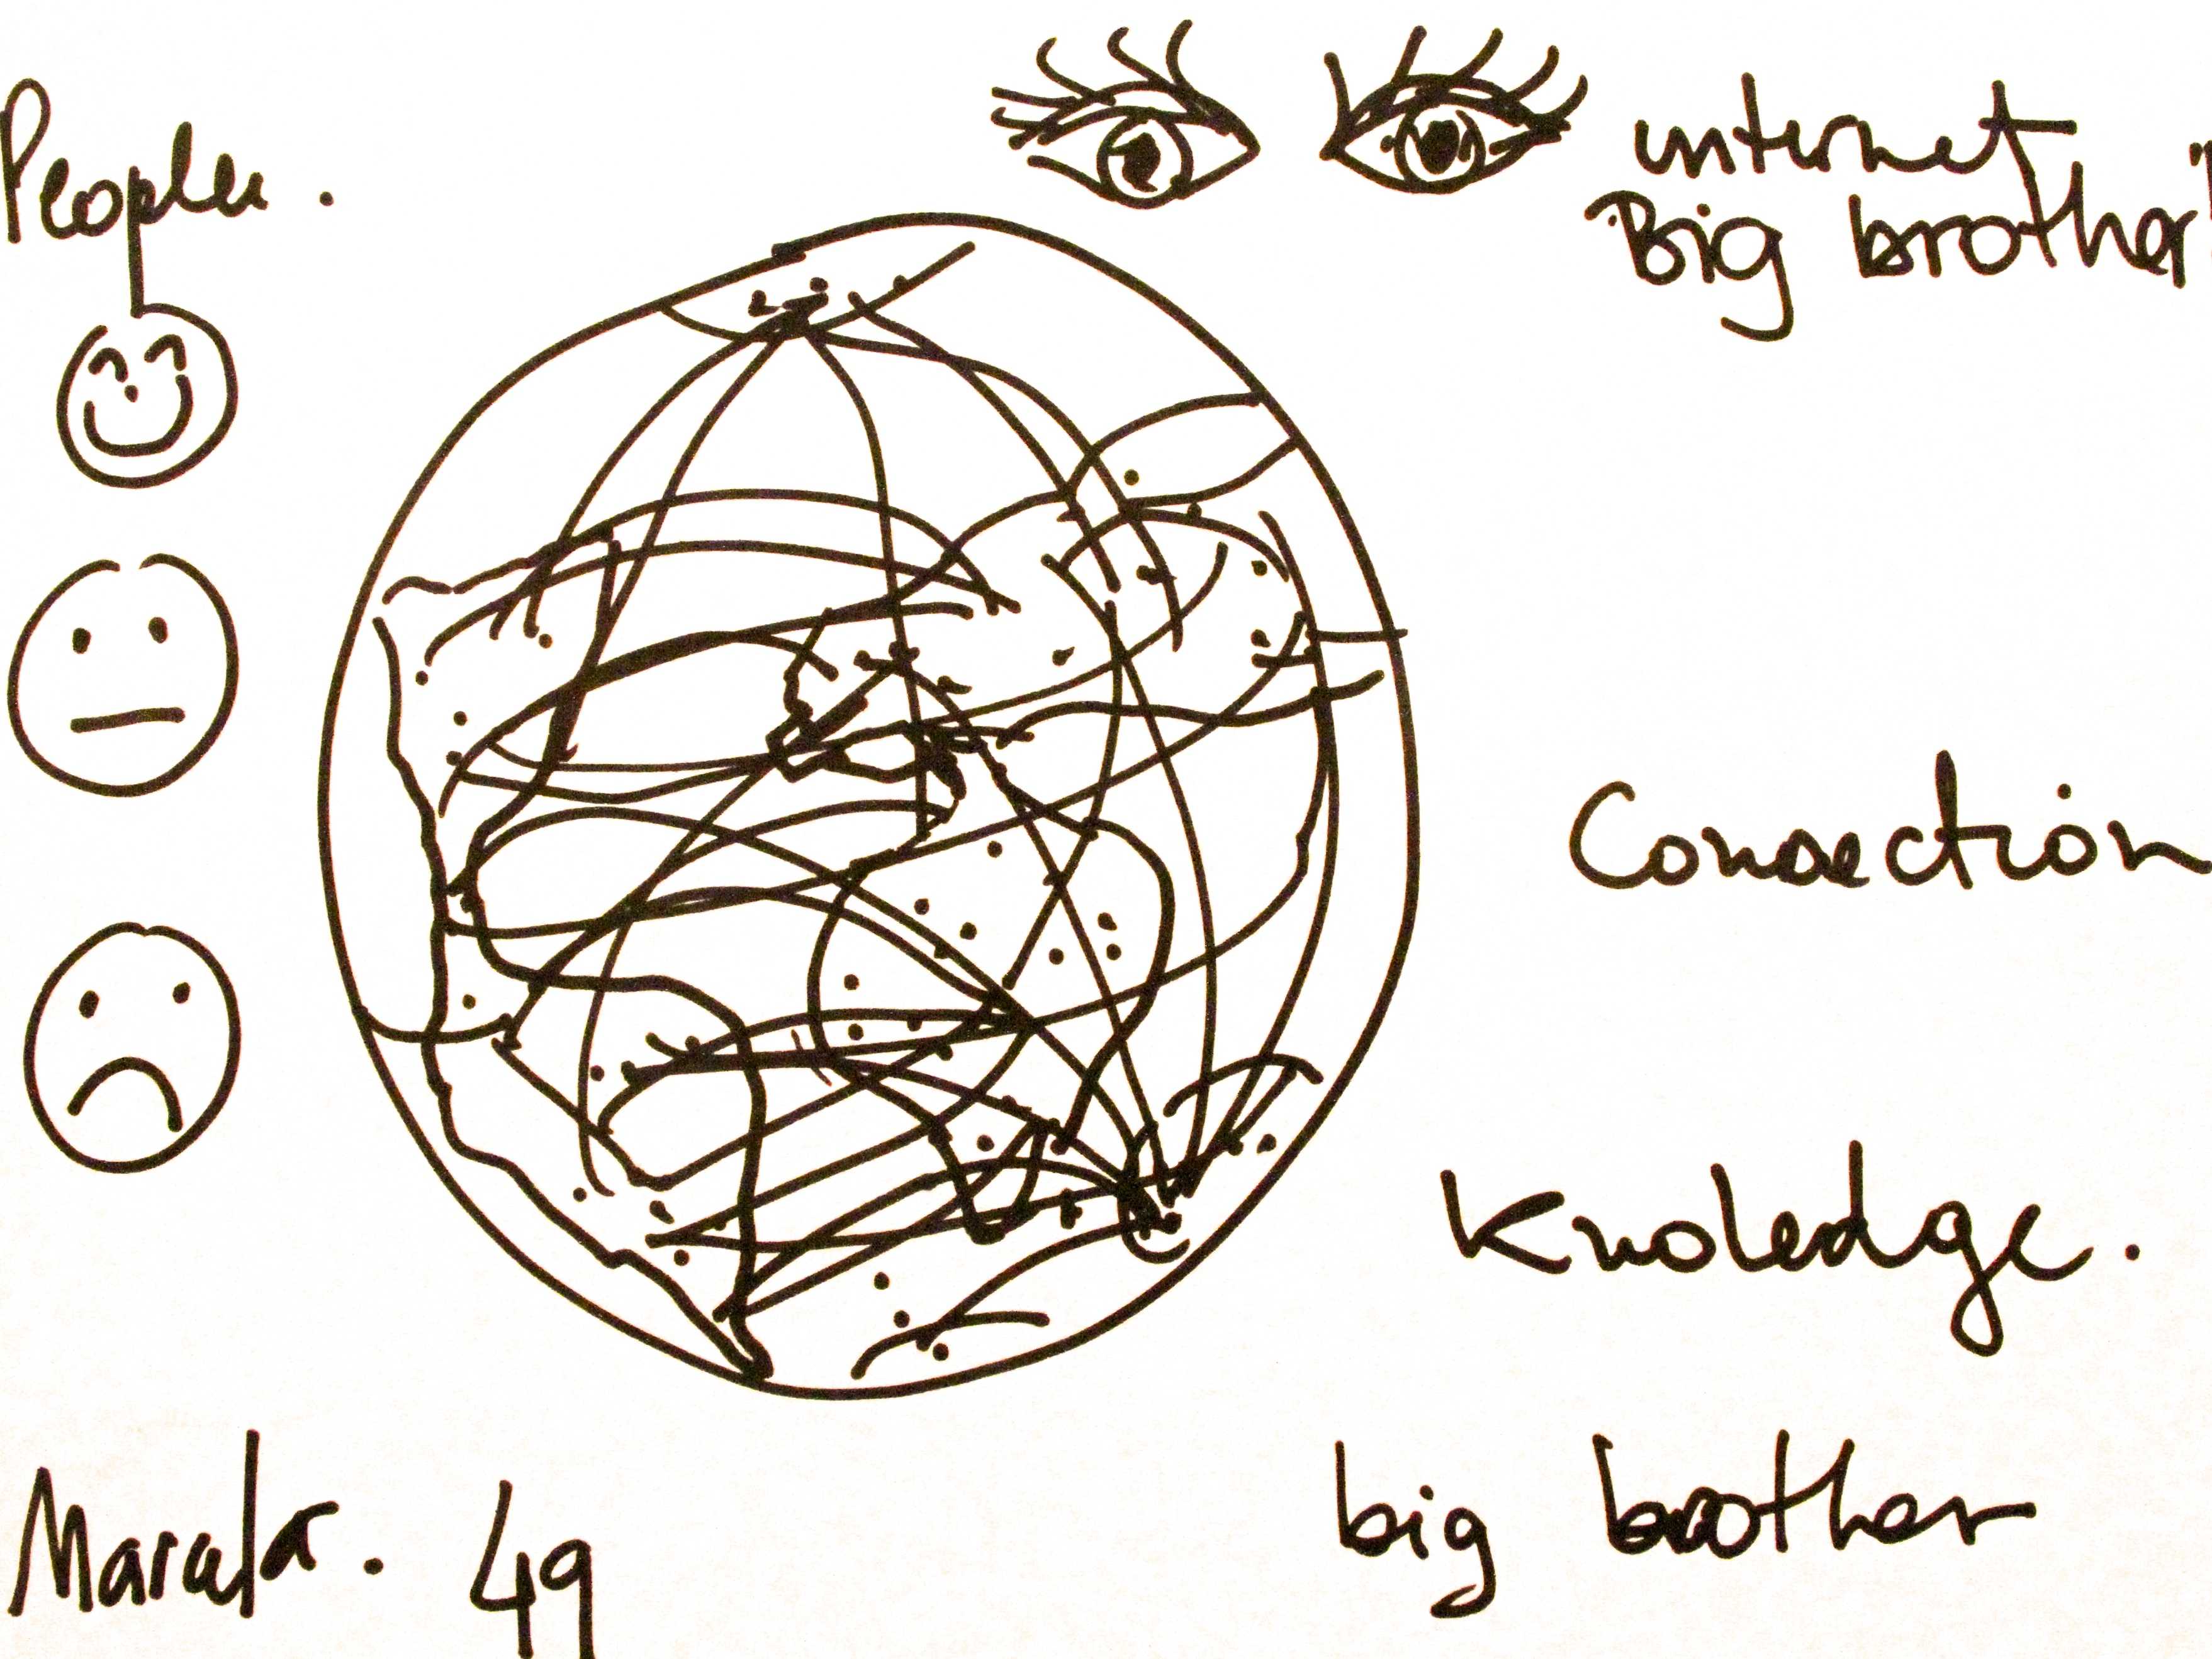 People.
internet
Big brother"
Connection
Knoledge.
big brother
49